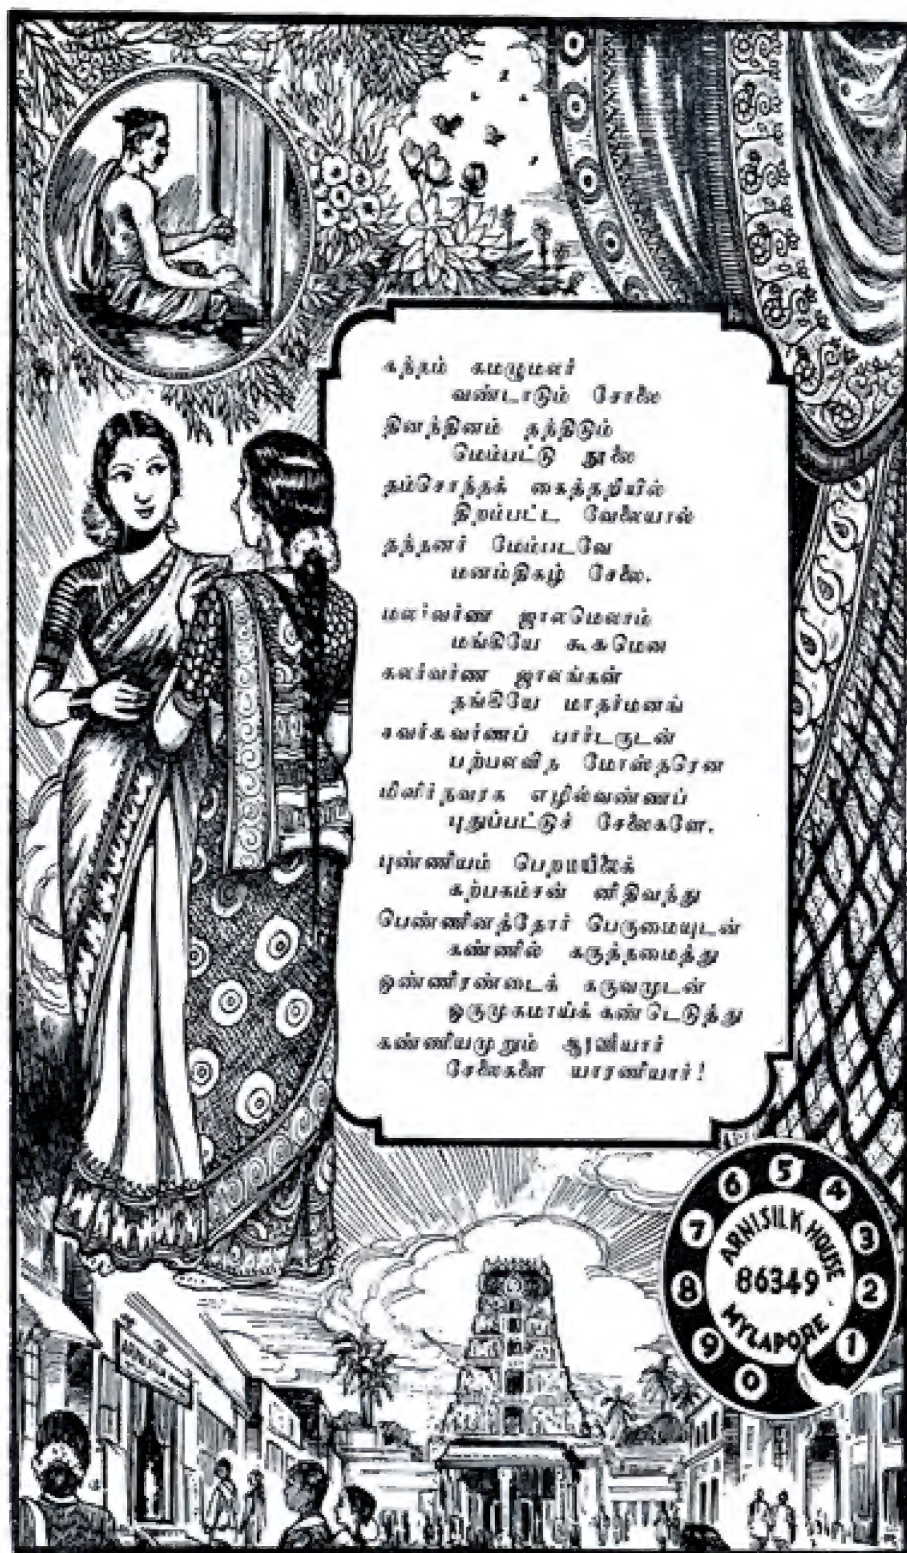 கந்தம் கமழுமலர்
வண்டாடும் சோலை
தினந்தினம் தந்திடும்
மெம்பட்டு நூலை
தம்சொந்தக் கைத்தறியில்
திறம்பட்ட வேலையால்
தந்தனர் மேம்படவே
மனம்திகழ் சேலை.
மலர்வர்ண ஜாலமெலாம்
மங்கியே கூகமென
கலர்வர்ண ஜாலங்கள்
தங்கியே மாதர்மனங்
சவர்கவர்ணப் பார்டருடன்
பற்பலவித மோஸ்தரென
மிளிர்நவரக எழில்வண்ணப்
புதுப்பட்டுச் சேலைகளே.
புண்ணியம் பெறமயிலைக்
கற்பகம்சன் னிதிவந்து
பெண்ணினத்தோர் பெருமையுடன்
கண்ணில் கருத்தமைத்து
ஒண்ணிரண்டைக் கருவமுடன்
ஒருமுகமாய்க் கண்டெடுத்து
கண்ணியமுறும் ஆரணியார்
சேலைகளை யாரணியார்!
5
6 4
7 3
8 2
9 1
0
ARNI SILK HOUSE
86349
MYLAPORE